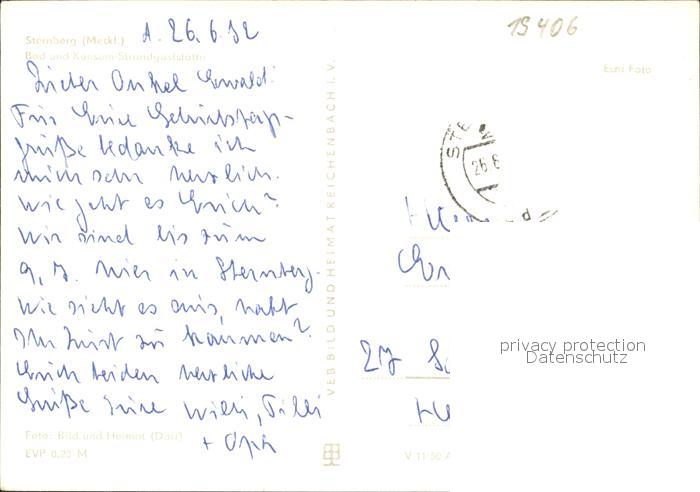 A. 26.6.
15406
Sternberg (Meckl.)
Bad und Konsum-Strandgaststätte
Echt Foto
Lieber Onkel Ewald!
Für Eure Geburtstags-
grüße bedanke ich
mich sehr herzlich.
Wie geht es Euch?
Wir sind bis zum
9.7. hier in Sternberg.
Wie sieht es aus, habt
Ihr Lust zu kommen?
Euch beiden herzliche
Grüße Eure Willi, Tilli
+ Opa
VEB BILD UND HEIMAT REICHENBACH I. V.
26.6
27
privacy protection
Datenschutz
Foto: Bild und Heimat (Darr)
EVP 0,20 M
V 11 50 A